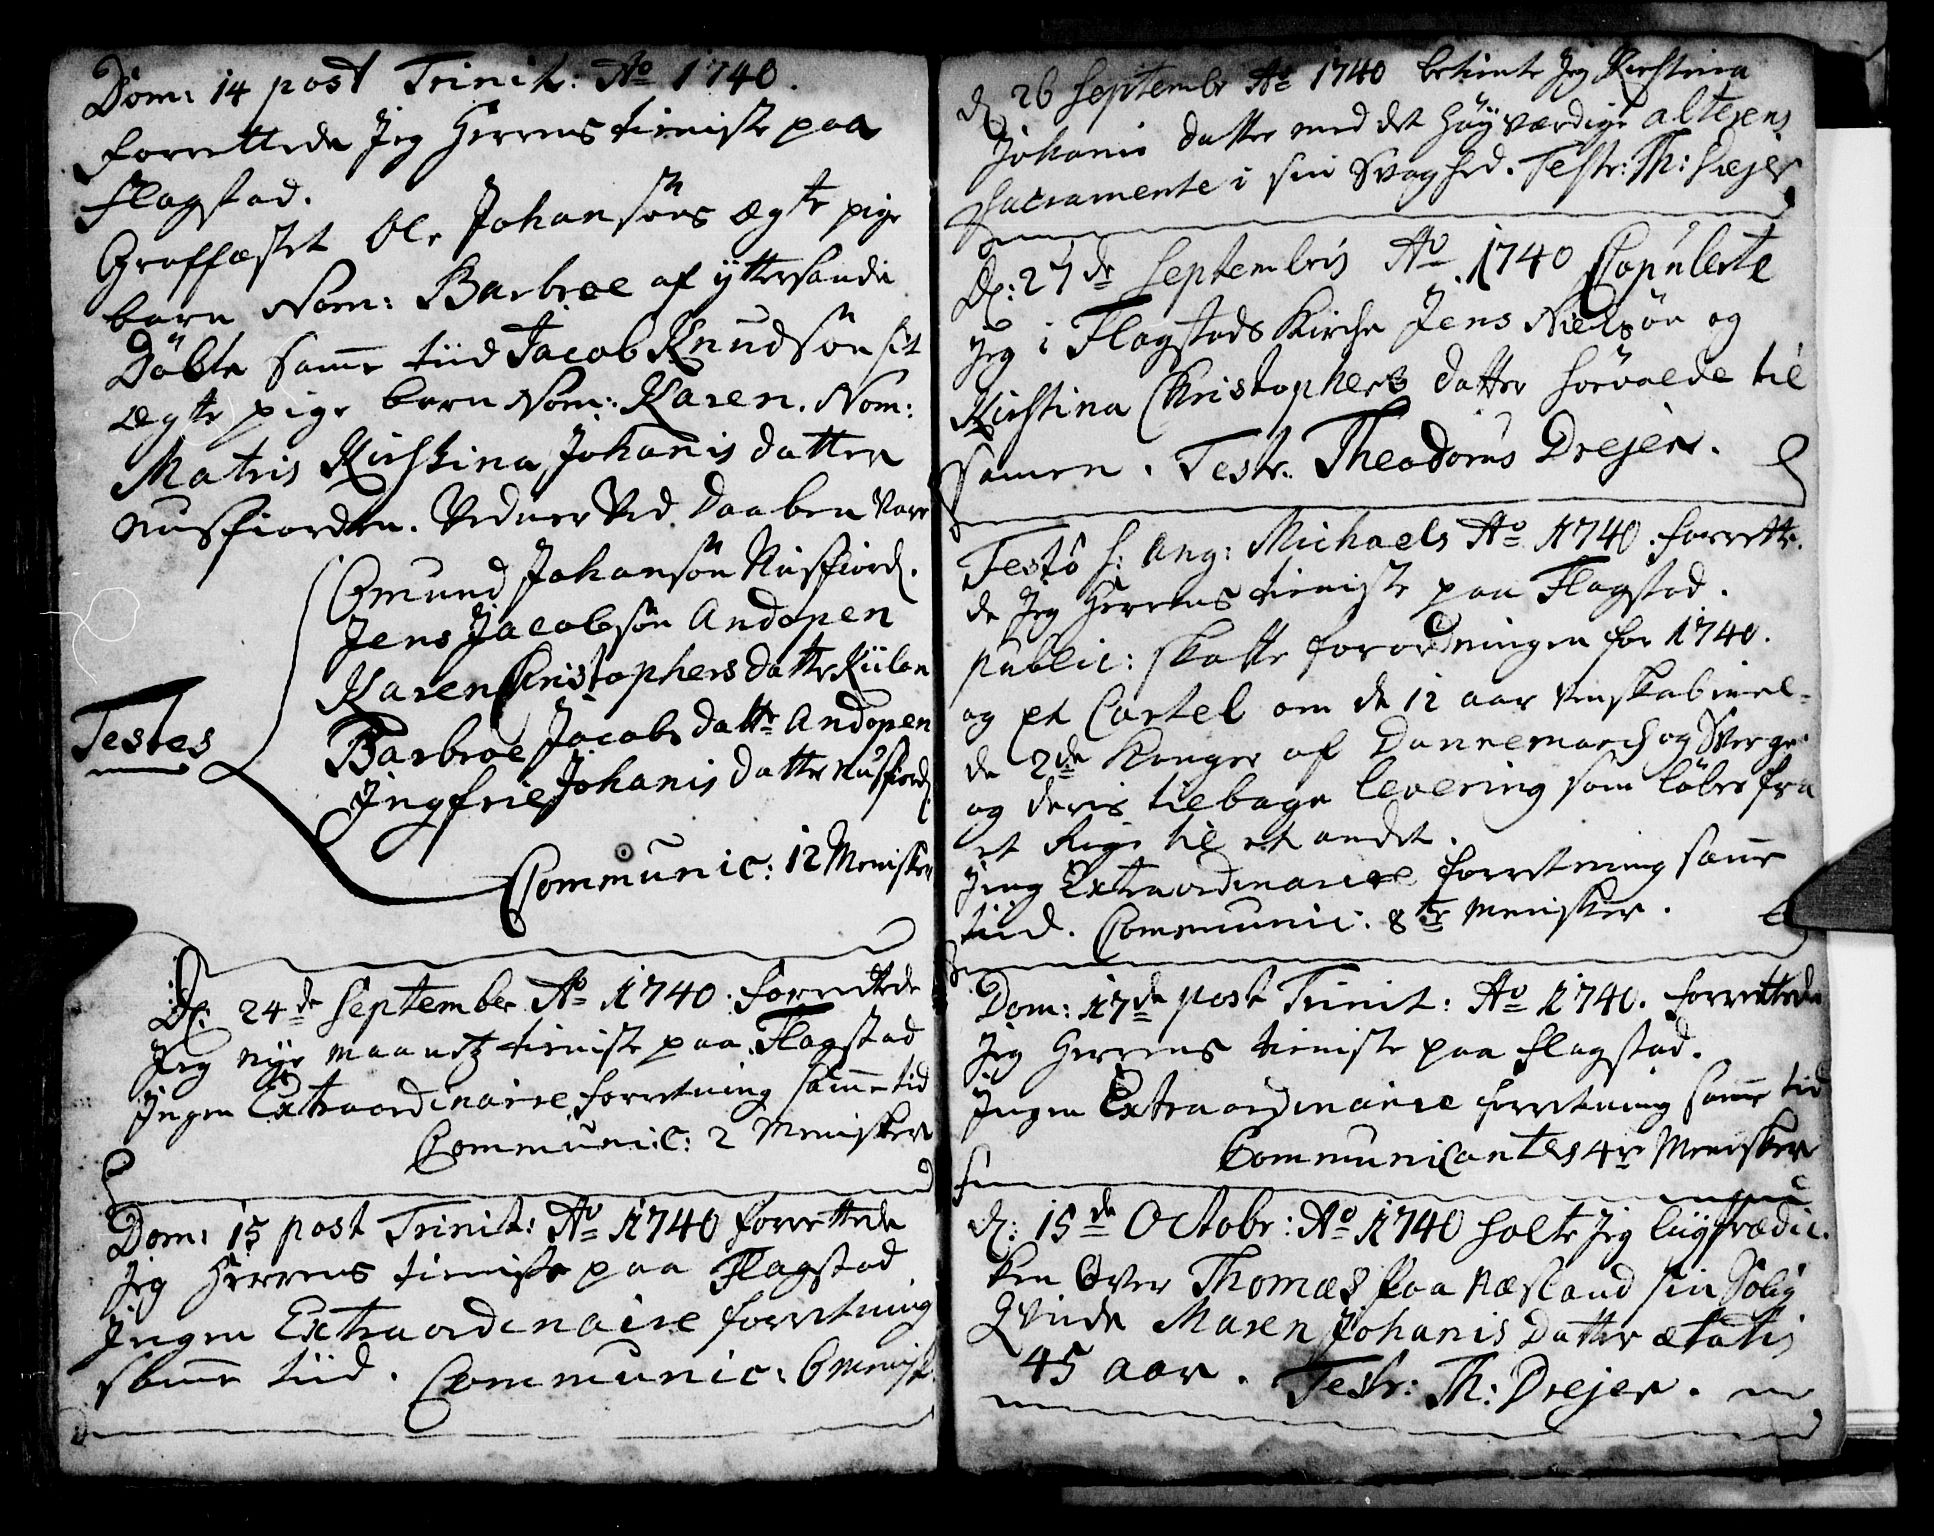 Dom: 14 post Trinit: Ao 1740.
forrettede Jeg Herrens tieniste paa
Flagstad.
Graffæstet Ole Johansöns ægte pige
barn Nom: Barbroe af yttersandn
Döbte samme tiid Jacob Knudsön sit
ægte pige barn Nom: Karen. Nom:
Matris Kirstina Johanis datter
Nusfiorden. Vidner Ved Daaben vare
Testes
Omund Johansön Nusfiord.
Jens Jacobsön Andopen
Karen Christophersdatter Kiilan
Barbroe Jacobs datter Andopen
Ingfrie Johanis datter Nusfiord.
Communic: 12 Menisker
D: 24de September Ao 1740. forrettede
Jeg nye maanetz tieniste paa Flagstad
Ingen Extraordinaire forretning samme tid
Communic: 2 Menisker
Dom: 15 post Trinit: Ao 1740 forrettede
Jeg Herrens tieniste paa Flagstad
Ingen Extraordinaire forretning
samme tiid. Communic: 6 Menisk.
d. 26 Septembr Ao 1740 betiente Jeg Kirstina
Johanis datter med det höyværdige alterens
Sacramente i sin Svaghed. Testr: Th: Drejer
D: 27de Septembris Ao 1740 Copulerte
Jeg i Flagstads Kirche Jens Nielsön og
Kirstina Christophers datter horvalde til
samen. Testr. Theodorus Drejer.
Festo S: Ang: Michaels Ao 1740. forrette-
de Jeg Herrens tieniste paa Flagstad.
public: skatte forordningen for 1740.
og et Cartel om de 12 aar imel-
de 2de Konger af Dannemarch og Sverge
og deris tilbage levering som löber fra
et Rige til et andet.
Jng Extraordinaire forretning samme
tiid. Communic: 8te Menisker.
Dom: 17de post Trinit: Ao 1740. forrettede
Jeg Herrens tieniste paa Flagstad.
Ingen Extraordinaire forretning samme tid
Communicantes 4re Menisker
d: 15de Octobr: Ao 1740 holte Jeg liigprædic-
ken Over Thomæs paa Næsland sin Salig
Qvinde Maren Johanis Datter ætatis
45 aar. Testr: Th: Drejer.